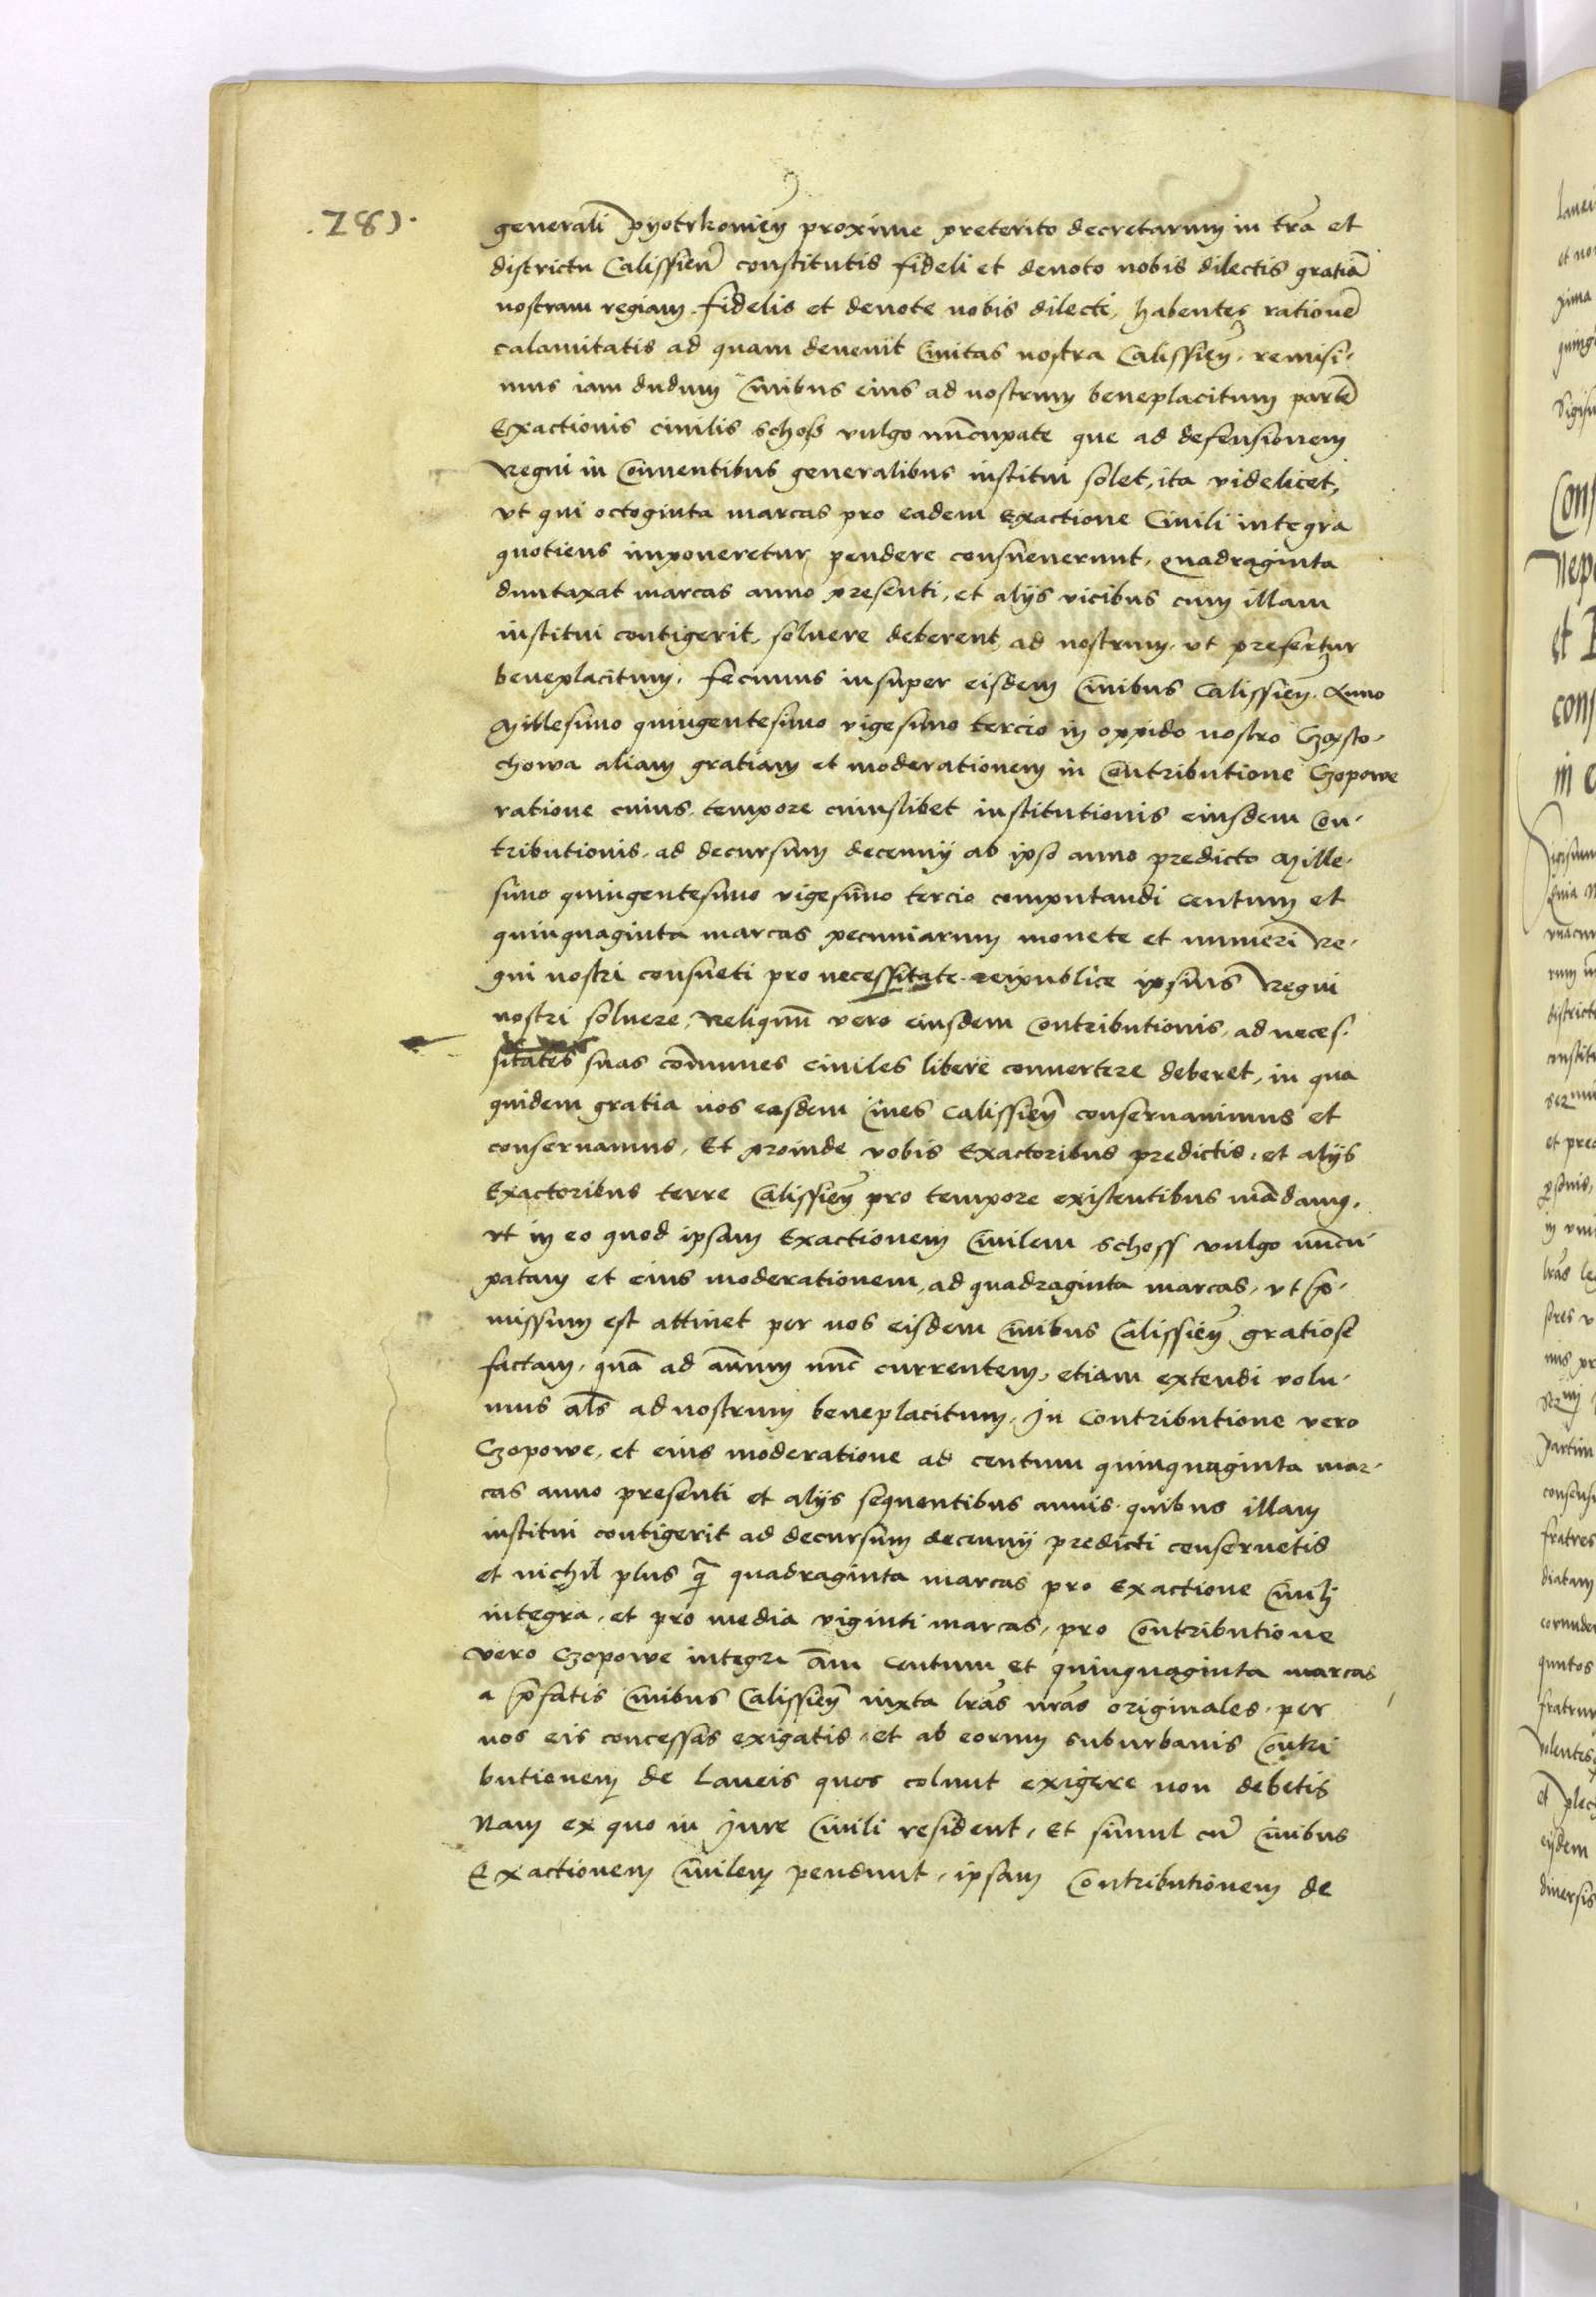 .281.
generali Pyotrkovień proxime preterito decretarum in tra et
districtu Calissień constitutis fideli et devoto nobis dilectis gratiā
nostram regiam. fidelis et devote nobis dilecti, habentes rationē
calamitatis ad quam devenit Civitas nostra Calissień. remisi-
mus iam dudum Civibus eius ad nostrum beneplacitum partē
Exactionis civilis schoss vulgo nūcupate que ad defensionem
Regni in Conventibus generalibus institui solet, ita videlicet,
vt qui octoginta marcas pro eadem Exactione Civili integra
quotiens imponeretur, pendere consueverunt, quadraginta
duntaxat marcas anno presenti, et alijs vicibus cum illam
institui contigerit, solvere deberent, ad nostrum, ut prefertur
beneplacitum. fecimus insuper eisdem Civibus Calissień. Anno
Millesimo quingentesimo vigesimo tercio in oppido nostro Czesto-
chowa aliam gratiam et moderationem in Contributione Czopowe
ratione cuius, tempore cuiuslibet institutionis eiusdem Con-
tributionis, ad decursum decennij ab ipso anno predicto Mille-
simo quingentesimo vigesimo tercio computandi centum et
quinquaginta marcas pecuniarum monete et numeri Re-
gni nostri consueti pro necessitate reipublice ipsius Regni
nostri solvere, Reliquū vero eiusdem Contributionis, ad neces-
sitates suas cōmunes civiles libere convertere deberet, in qua
quidem gratia nos easdem Cives Calissień conservavimus et
conservamus. Et proinde vobis Exactoribus predictis, et alijs
Exactoribus terre Calissień pro tempore existentibus mādamus,
vt in eo quod ipsam Exactionem Civilem schoss vulgo nūcu-
patam et eius moderationem, ad quadraginta marcas, vt p̄-
missum est attinet per nos eisdem Civibus Calissień gratiose
factam, quā ad annum nūc currentem, etiam extendi volu-
mus als ad nostrum beneplacitum. In Contributione vero
Czopowe, et eius moderatione ad centum quinquaginta mar-
cas anno presenti et alijs sequentibus annis quibus illam
institui contigerit ad decursum decennij predicti conservetis
et nichil plus q̄ quadraginta marcas pro Exactione Civili
integra, et pro media viginti marcas, pro Contributione
vero Czopowe integri āni centum et quinquaginta marcas
a p̄fatis Civibus Calissień iuxta lrās nrās originales per
nos eis concessas exigatis, et ab eorum suburbanis Contri
butionem de Laneis quos colunt exigere non debetis
Nam ex quo in Jure Civili resident, Et simul cū Civibus
Exactionem Civilem pendunt, ipsam Contributionem de